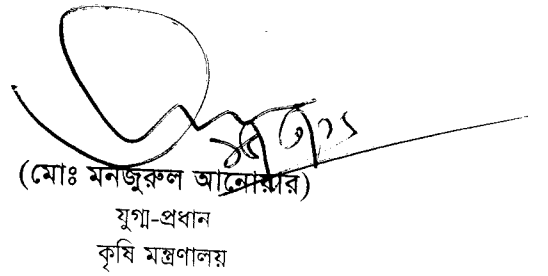 (মোঃ মনজুরুল আনোয়ার)
যুগ্ম-প্রধান
কৃষি মন্ত্রণালয়